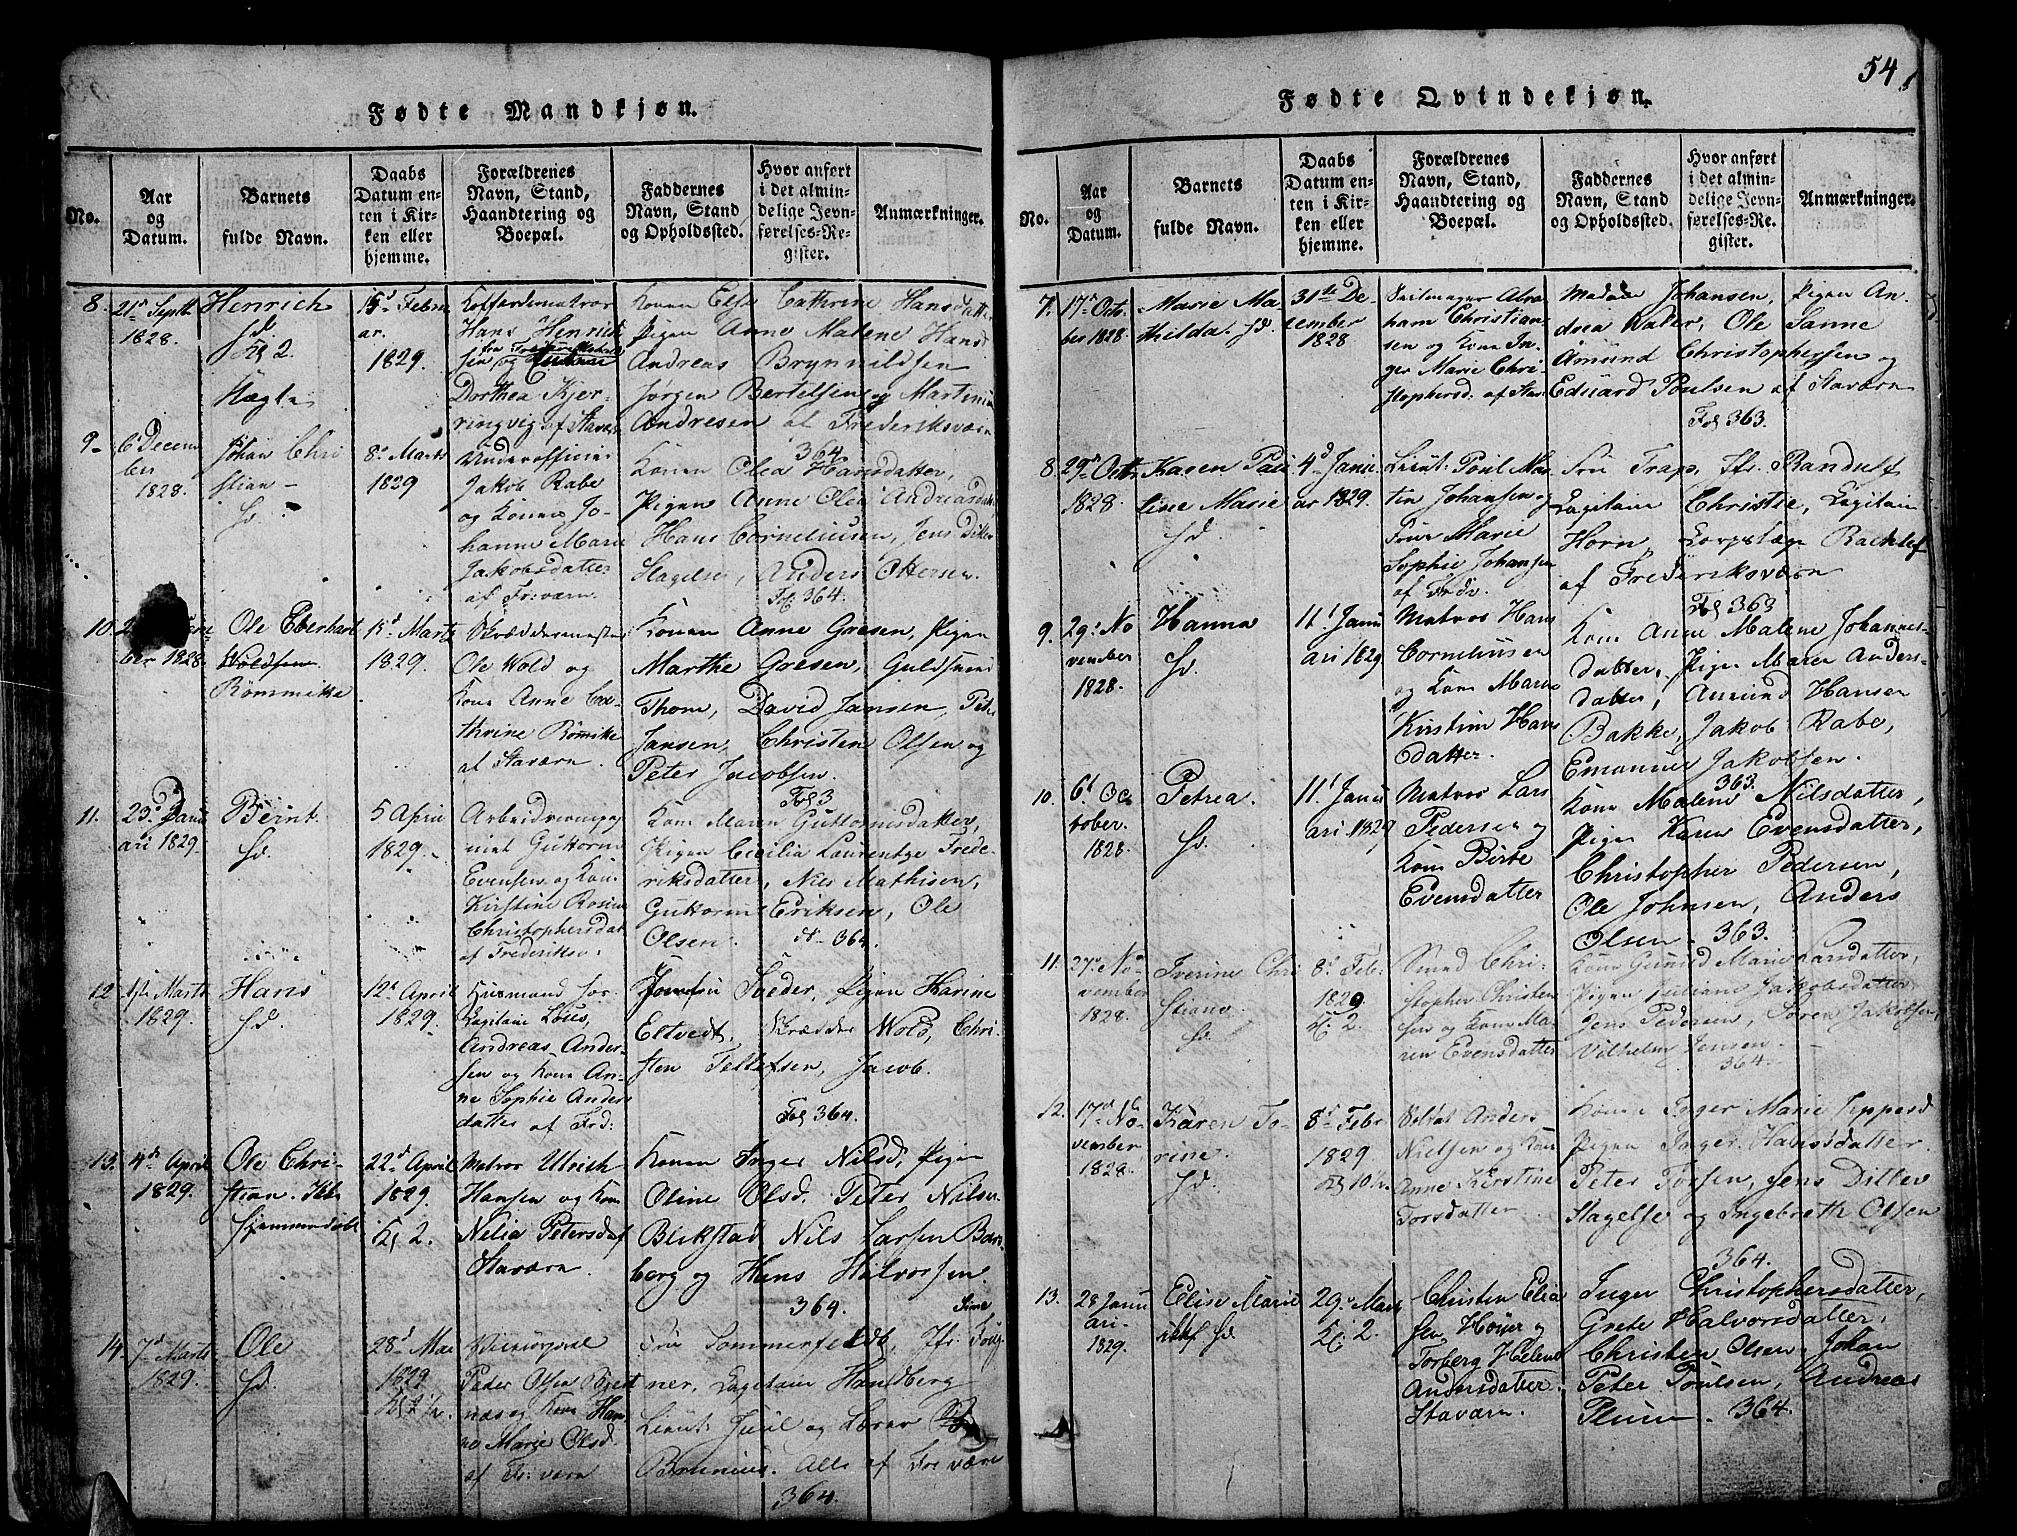 54
Fødte Mandkjøn.
No.
Aar og Datum.
Barnets fulde Navn.
Daabs Datum enten i Kirken eller hjemme.
Forældrenes Navn, Stand, Haandtering og Boepæl.
Faddernes Navn, Stand og Opholdssted.
Hvor anført i det almindelige Jevnførelses-Register.
Anmærkninger.
8.
21d Septb
1828.
Henrich
Hd.
Kl 2.
Uægte
15d Febru
ar.
1829.
Hans Henrich
sen og
Dorthea Kjer-
ringvig af Stavær
Konen Else Cathrine Hansdatter
Pigen Anne Malene Hans
Andreas Brynnildsen
Jørgen Bertelsen og Martinius
Andresen af Frederiksværn
364
9.
6d Decem
ber
1828.
Johan Chri
stian
Hd.
8d Marts
1829
Underofficier
Jakob Rabe
og Konen Jo-
hanne Marie
Jakobsdatter
af Fr:værn.
Konen Olea Hansdatter,
Pigen Anne Olea Andreasdat
Hans Corneliusen, Jens Ditlev
Slagelse, Anders Ottersen.
Fol 364.
10.
ber 1828.
Ole Eberhart
Woldsen
Römmike
15d Marts
1829.
Skræddermester
Ole Wold og
Kone Anne Ca-
thrine Römike
af Staværn.
Konen Anne Gresen, Pigen
Marthe Gresen, Guldsmed
Thom, David Jansen, Peter
Jansen, Christen Olsen og
Peter Jacobsen.
Fol 3
11.
23d Janu
ari 1829.
Bernt.
Hd.
5 April
1829.
Guttorm
Evensen og Kone
Kirstine Rosine
Christophersdat
af Frederiksv:
Kone Maren Guttormsdatter,
Pigen Cecilia Laurentze Frede-
riksdatter, Nils Mathisen,
Guttorm Eriksen, Ole
Olsen.
364.
12
1829.
Hans
Hd.
12d April
1829.
Huusmand for
Capitain Lous,
Andreas Ander-
sen og Kone An-
ne Sophie Anders
datter af Frd:
Jomfru Sveder, Pigen Karine
Eltvedt, Skrædder Wold, Chri-
sten Tellefsen, Jacob.
Fol 364.
13.
4de April
1829.
Ole Chri-
stian.
Hjemmedøbt
22d April
1829
Kl 2.
Matros Ulrich
Hansen og Kone
Nelia Petersdat
Staværn.
Konen Inger Nilsd, Pigen
Oline Olsd. Peter Nilsen
Blikstad Nils Larsen Bar-
berg og Hans Halvorsen.
364.
14.
7d Marts
1829.
Ole
Hd.
28d Mai
1829
Peder Olsen
næs og Kone Han-
ne Marie Olsd.
af Fr:værn
Fru Sommerfeldt, Jfr:
ner, Capitain Handberg
Lieut: Juul og Lærer
Brunius. Alle af Fre værn
364.
Fødte Qvindekjøn.
No.
Aar og Datum.
Barnets fulde Navn.
Daabs Datum enten i Kirken eller hjemme.
Forældrenes Navn, Stand, Haandtering og Boepæl.
Faddernes Navn, Stand og Opholdssted.
Hvor anført i det almindelige Jevnførelses-Register.
Anmærkninger.
7.
17d Octo
ber 1828.
Marie Ma-
thilda. Hd.
31te De-
cember
1828
Seilmager Abra
ham Christian-
sen og Kone In-
ger Marie Chri-
stophersd. af Stav
Madam Johansen, Pigen An-
drea Water, Ole Sanne
Amund Christophersen og
Eduard Poulsen af Staværn
Fol 363.
8.
29d Octbr
1828.
Karen Pau
line Marie
Hd.
4d Janu
ar 1829.
Lieut: Poul Mar
tin Johansen og
Frue Marie
Sophie Johansen
af Fredv.
Fru Trap, Jfr. Randulf
Capitain Christie, Capitain
Horn, Corpslæge Rachlef
af Frederiksværn
Fol 363
9.
29d No
vember
1828.
Hanna
Hd.
11t Janu
ari 1829
Matros Hans
Corneliusen
og Kone Maren
Kirstine Hans
datter.
Kone Anne Malene Johannes-
datter, Pigen Maren Anders-
datter, Amund Hansen
Bakke, Jakob Rabe,
Emanuel Jakobsen.
363.
10.
6d Oc
tober.
1828.
Petrea.
Hd.
11t Janu
ari 1829
Matros Lars
Pedersen og
Kone Birte
Evensdatter
Kone Malene Nilsdatter,
Pigen Karen Evensdatter,
Christopher Pedersen,
Ole Johnsen, Anders
Olsen. 363.
11.
27d No
vember
1828.
Iverine Chri
stiane
Hd.
8d Feb:
1829
Kl: 2.
Smed Chri-
stopher Christen
sen og Kone Ma-
ren Evensdatter
Kone Gunild Marie Larsdatter,
Pigen Juliane Jakobsdatter,
Jens Pedersen, Søren Jakobsen,
Vilhelm Jensen.
364.
12.
17d No
vember
1828.
Karen To-
rine.
Hd.
8d Febr
1829.
Kl 10½
Soldat Anders
Nielsen og Kone
Anne Kirstine
Torsdatter
Kone Inger Marie Jeppesd
Pigen Inger Hansdatter
Peter Torsen, Jens Ditlev
Slagelse og Ingebreth Olsen
364.
13.
28 Janu
ari
1829.
Elise Marie
Hd
29d Marts
Kl: 2.
Christen Elia
sen Höyer og
Torberg Helene
Andersdatter.
Staværn.
Inger Christophersdatter,
Grete Halvorsdatter,
Christen Olsen, Johan
Peter Poulsen, Andreas
Plum. 364.